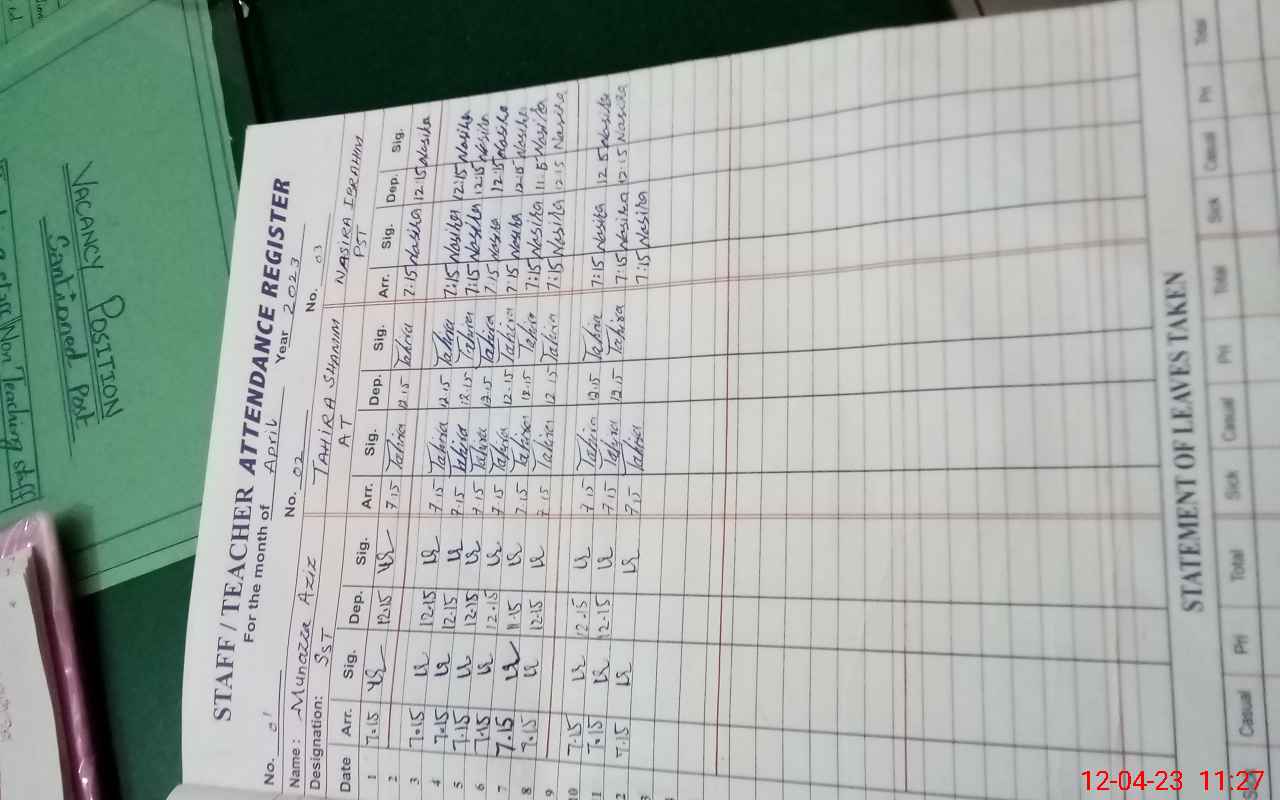 VACANCY POSITION
Santioned Post
Non Teaching Staff
STAFF / TEACHER ATTENDANCE REGISTER
For the month of April Year 2023
No. 01 No. 02 No. 03
Name : Munazza Aziz TAHIRA SHAMIM NASIRA IBRAHIM
Designation: SST AT PST
Date Arr. Sig. Dep. Sig. Arr. Sig. Dep. Sig. Arr. Sig. Dep. Sig.
1 7.15 12.15 7.15 Tahira 12.15 Tahira 7:15 Nasira 12:15 Nasira
2
3 7.15 12.15 7.15 Tahira 12.15 Tahira 7:15 Nasira 12:15 Nasira
4 7.15 12.15 7.15 Tahira 12.15 Tahira 7:15 Nasira 12:15 Nasira
5 7.15 12.15 7.15 Tahira 12.15 Tahira 7:15 Nasira 12:15 Nasira
6 7.15 12.15 7.15 Tahira 12.15 Tahira 7:15 Nasira 12:15 Nasira
7 7.15 11.15 7.15 Tahira Tahira 7:15 Nasira 11.15 Nasira
8 7.15 12.15 7.15 Tahira 12.15 Tahira 7:15 Nasira 12:15 Nasira
9
10 7.15 12.15 7.15 Tahira 12.15 Tahira 7:15 Nasira 12:15 Nasira
11 7.15 12.15 7.15 Tahira 12.15 Tahira 7:15 Nasira 12:15 Nasira
2 7.15 7.15 Tahira 7:15 Nasira
STATEMENT OF LEAVES TAKEN
Sick Casual Pri Total Sick Casual Pri Total Sick Casual Pri Total
12-04-23 11:27